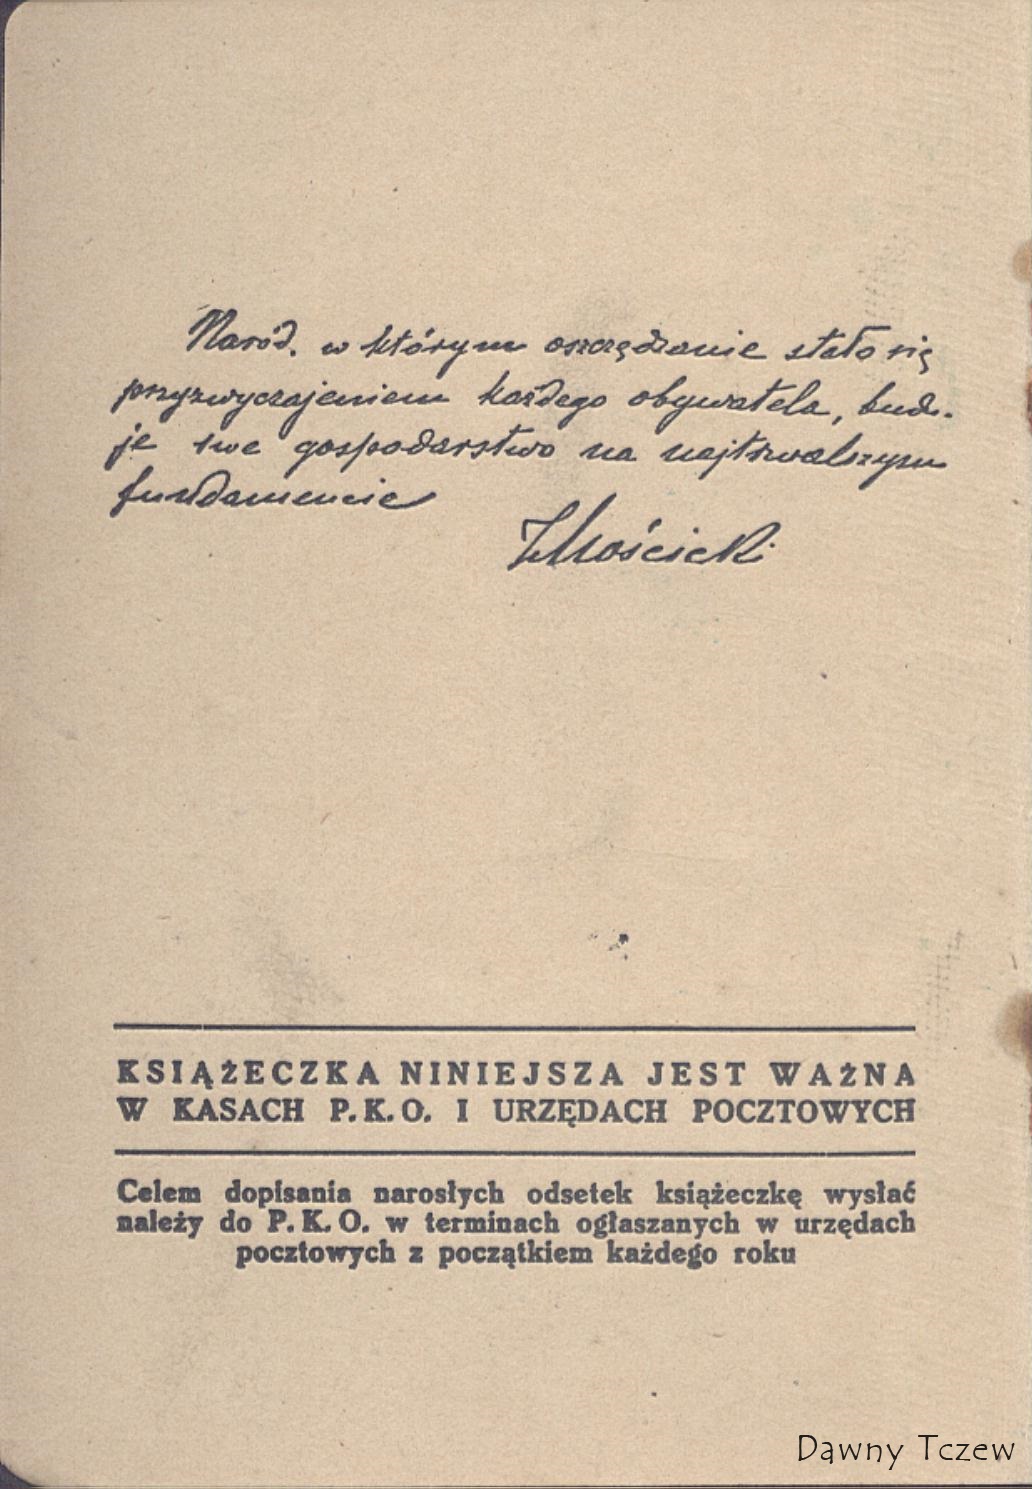 Naród, w którym oszczędzanie stało się
przyzwyczajeniem każdego obywatela, budu-
je swe gospodarstwo na najtrwalszym
fundamencie
IMościcki
KSIĄŻECZKA NINIEJSZA JEST WAŻNA
W KASACH P.K.O. I URZĘDACH POCZTOWYCH
Celem dopisania narosłych odsetek książeczkę wysłać
należy do P.K.O. w terminach ogłaszanych w urzędach
pocztowych z początkiem każdego roku
Dawny Tczew